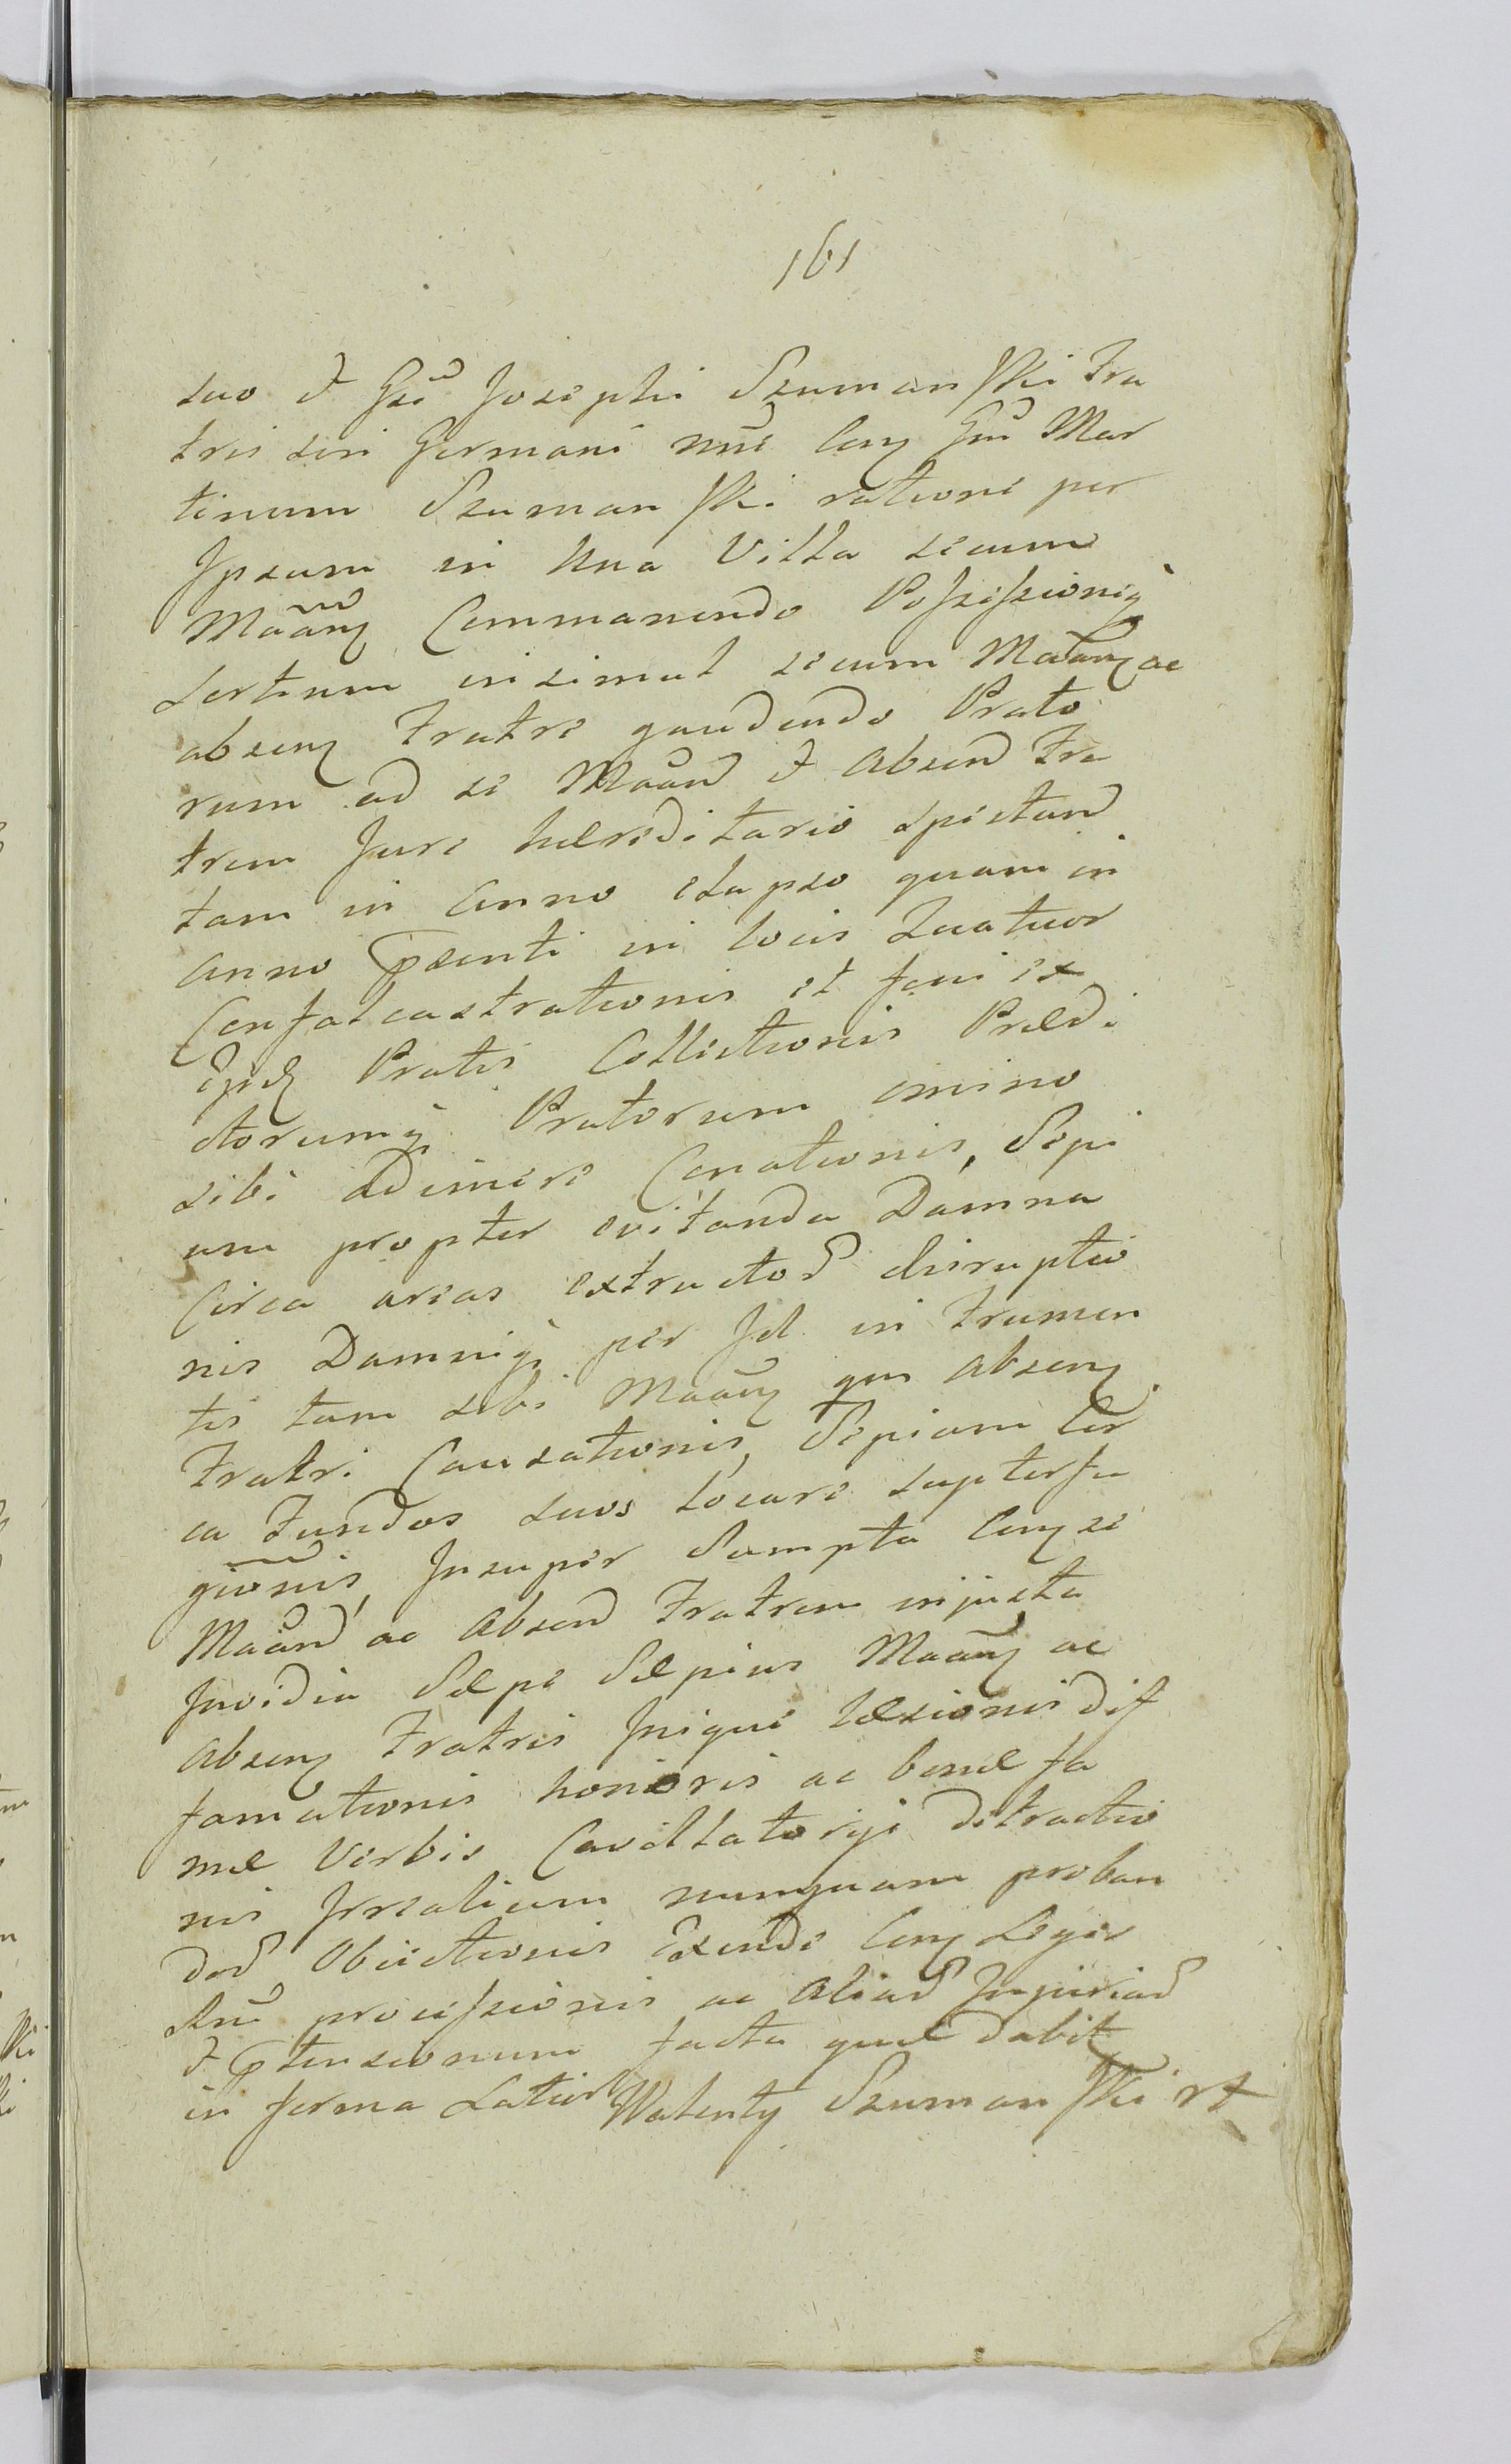 161
suo & Gsi Josephi Szumanski Fra
tris sui Germani nne Con Gm Mar
tinum Szumanski ratione per
Ipsum in una Villa secum
Maan Commanendo Possessioniq
sortium insimul secum Maan ac
absen Fratre gaudendo Prato
rum ad se Maand & absend Fra
trem Jure haereditario spectand
tam in anno elapso quam in
anno psenti in locis Quatuor
Confalcastrationis et feni ex
Pratis Collectionis Praedi
ctorumq Pratorum omnino
sibi adimere Conationis, Sepi
um propter evitanda Damna
Circa areas extructos disruptio
nis Damniq per Id in Frumen
tis tam sibi Maan qm absen
Fratri Causationis, Sepiam Cir
ca Fundos suos locare supterfu
gionis, Insuper Sumpta Con se
Maand ac absend Fratrem injusta
Invidia Saepe Saepius Maan ac
absen Fratris Inique laesionis dif
famationis honoris ac bonae fa
mae Verbis Cavillatorijs detractio
nis Irrealium nunquam proban
dod Obiectionis Exinde Con Leges
Rni processionis ac aliad Injuriad
& ptensionum facta quae dabit
in forma Latiori Walenty Szumanski